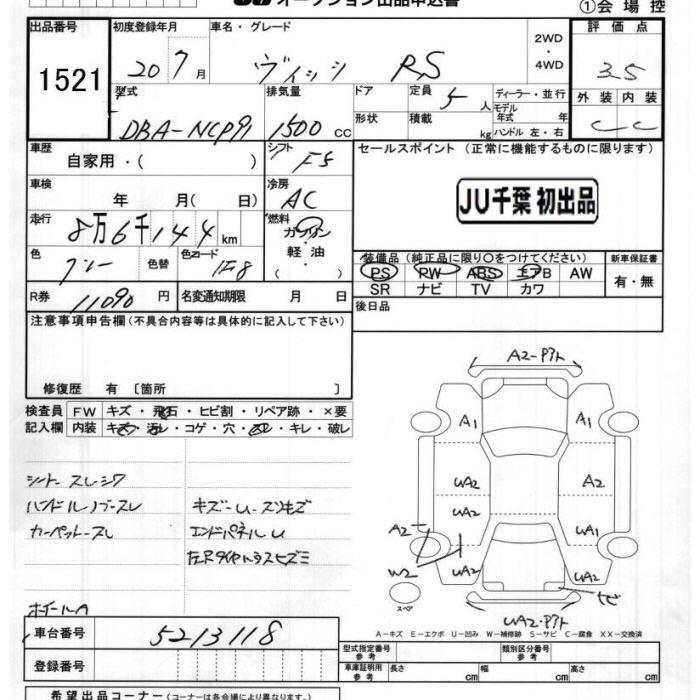 オークション出品申込書
①会 場 控
出品番号 初度登録年月 車名・グレード 評 価 点
1521 20 7月 ヴィッツ RS 2WD ・ 4WD 3.5
型式 排気量 ドア 定員 5人 ディーラー・並行 外 装 内 装
DBA-NCP91 1500 CC 形状 積載 kg モデル年式 年 ハンドル 左・右 C C
車歴 自家用・( ) シフト F5 セールスポイント (正常に機能するものに限ります)
車検 年 月( 日) 冷房 AC JU千葉 初出品
走行 8万6千144 km 燃料 ガソリン・軽 油
色 グレー 色替 色コード 1E8 装備品 (純正品に限り○をつけてください) 新車保証書
PS PW ABS エアB AW 有・無
SR ナビ TV カワ
R券 11090 円 名変通知期限 月 日 後日品
注意事項申告欄 (不具合内容等は具体的に記入して下さい)
修復歴 有 〔箇所 〕
検査員 FW キズ・飛石・ヒビ割・リペア跡・×要
記入欄 内装 キズ・汚レ・コゲ・穴・スレ・キレ・破レ
シート スレ シワ
ハンドル ノブ スレ キズ-U-スリキズ
カーペット-スレ エンドパネル U
ホイールA
A2-P外
A1 A1
UA2 A2
UA2 UA1
A2
W2 UA2 UA2
スペア ヒビ
UA2・P外
A-キズ E-エクボ U-凹み W-補修跡 S-サビ C-腐食 XX-交換済
車台番号 5213118
登録番号
型式指定番号 参 考 類別区分番号 参 考
車庫証明用 参 考 長さ cm 幅 cm 高さ cm
希望出品コーナー (コーナーは各会場により異なります。)